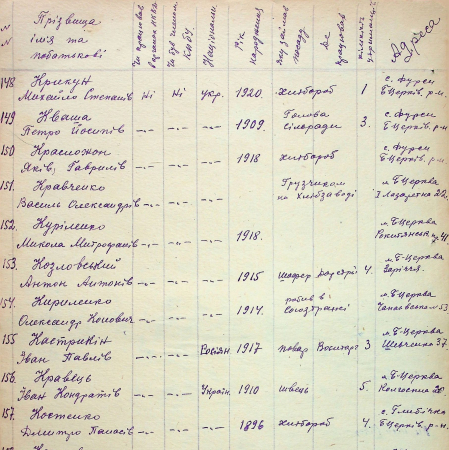 N
N
Прізвища
ім'я та
побатькові
Чи
Чи був членом
КП(б)У
Національн.
Рік
народження
посаду
Де
працював
Кількість
Адреса
148
Крикун
Михайло Степанів Ні Ні укр. 1920. хлібороб 1
с. Фурси
Б Церків. р-н.
149
Кваша
Петро Йосипів —"— —"— —"— 1909.
Голова
сільради 3.
с. Фурси
Б Церків. р-н.
150
Яків, Гаврилів —"— —"— —"— 1918 хлібороб
с. Фурси
Б Церків. р-н.
151.
Кравченко
Василь Олександрів —"— —"— —"—
Грузчиком
на
м Б Церква
І Лазаретна 22.
152.
Куріленко
Микола Митрофанів —"— —"— —"— 1918.
м Б Церква
41
153.
Козловський
Антон Антонів —"— —"— —"— 1915 шофер 4.
м. Б Церква
Заріччя.
154.
Кириленко
Олександр —"— —"— —"— 1914.
робив в
Союзтрансі
м. Б Церква
53
155
Кастрикін
Іван Павлів —"— —"— Росіян. 1917 повар Воєнторг 3
м. Б Церква
Шевченко 37.
156.
Кравець
Іван Кондратів —"— —"— Україн. 1910 швець 5.
м. Б Церква
157.
Костенко
Дмитро Панасів —"— —"— —"— 1896 хлібороб 4.
с. Глибічка
Б Церків. р-н.